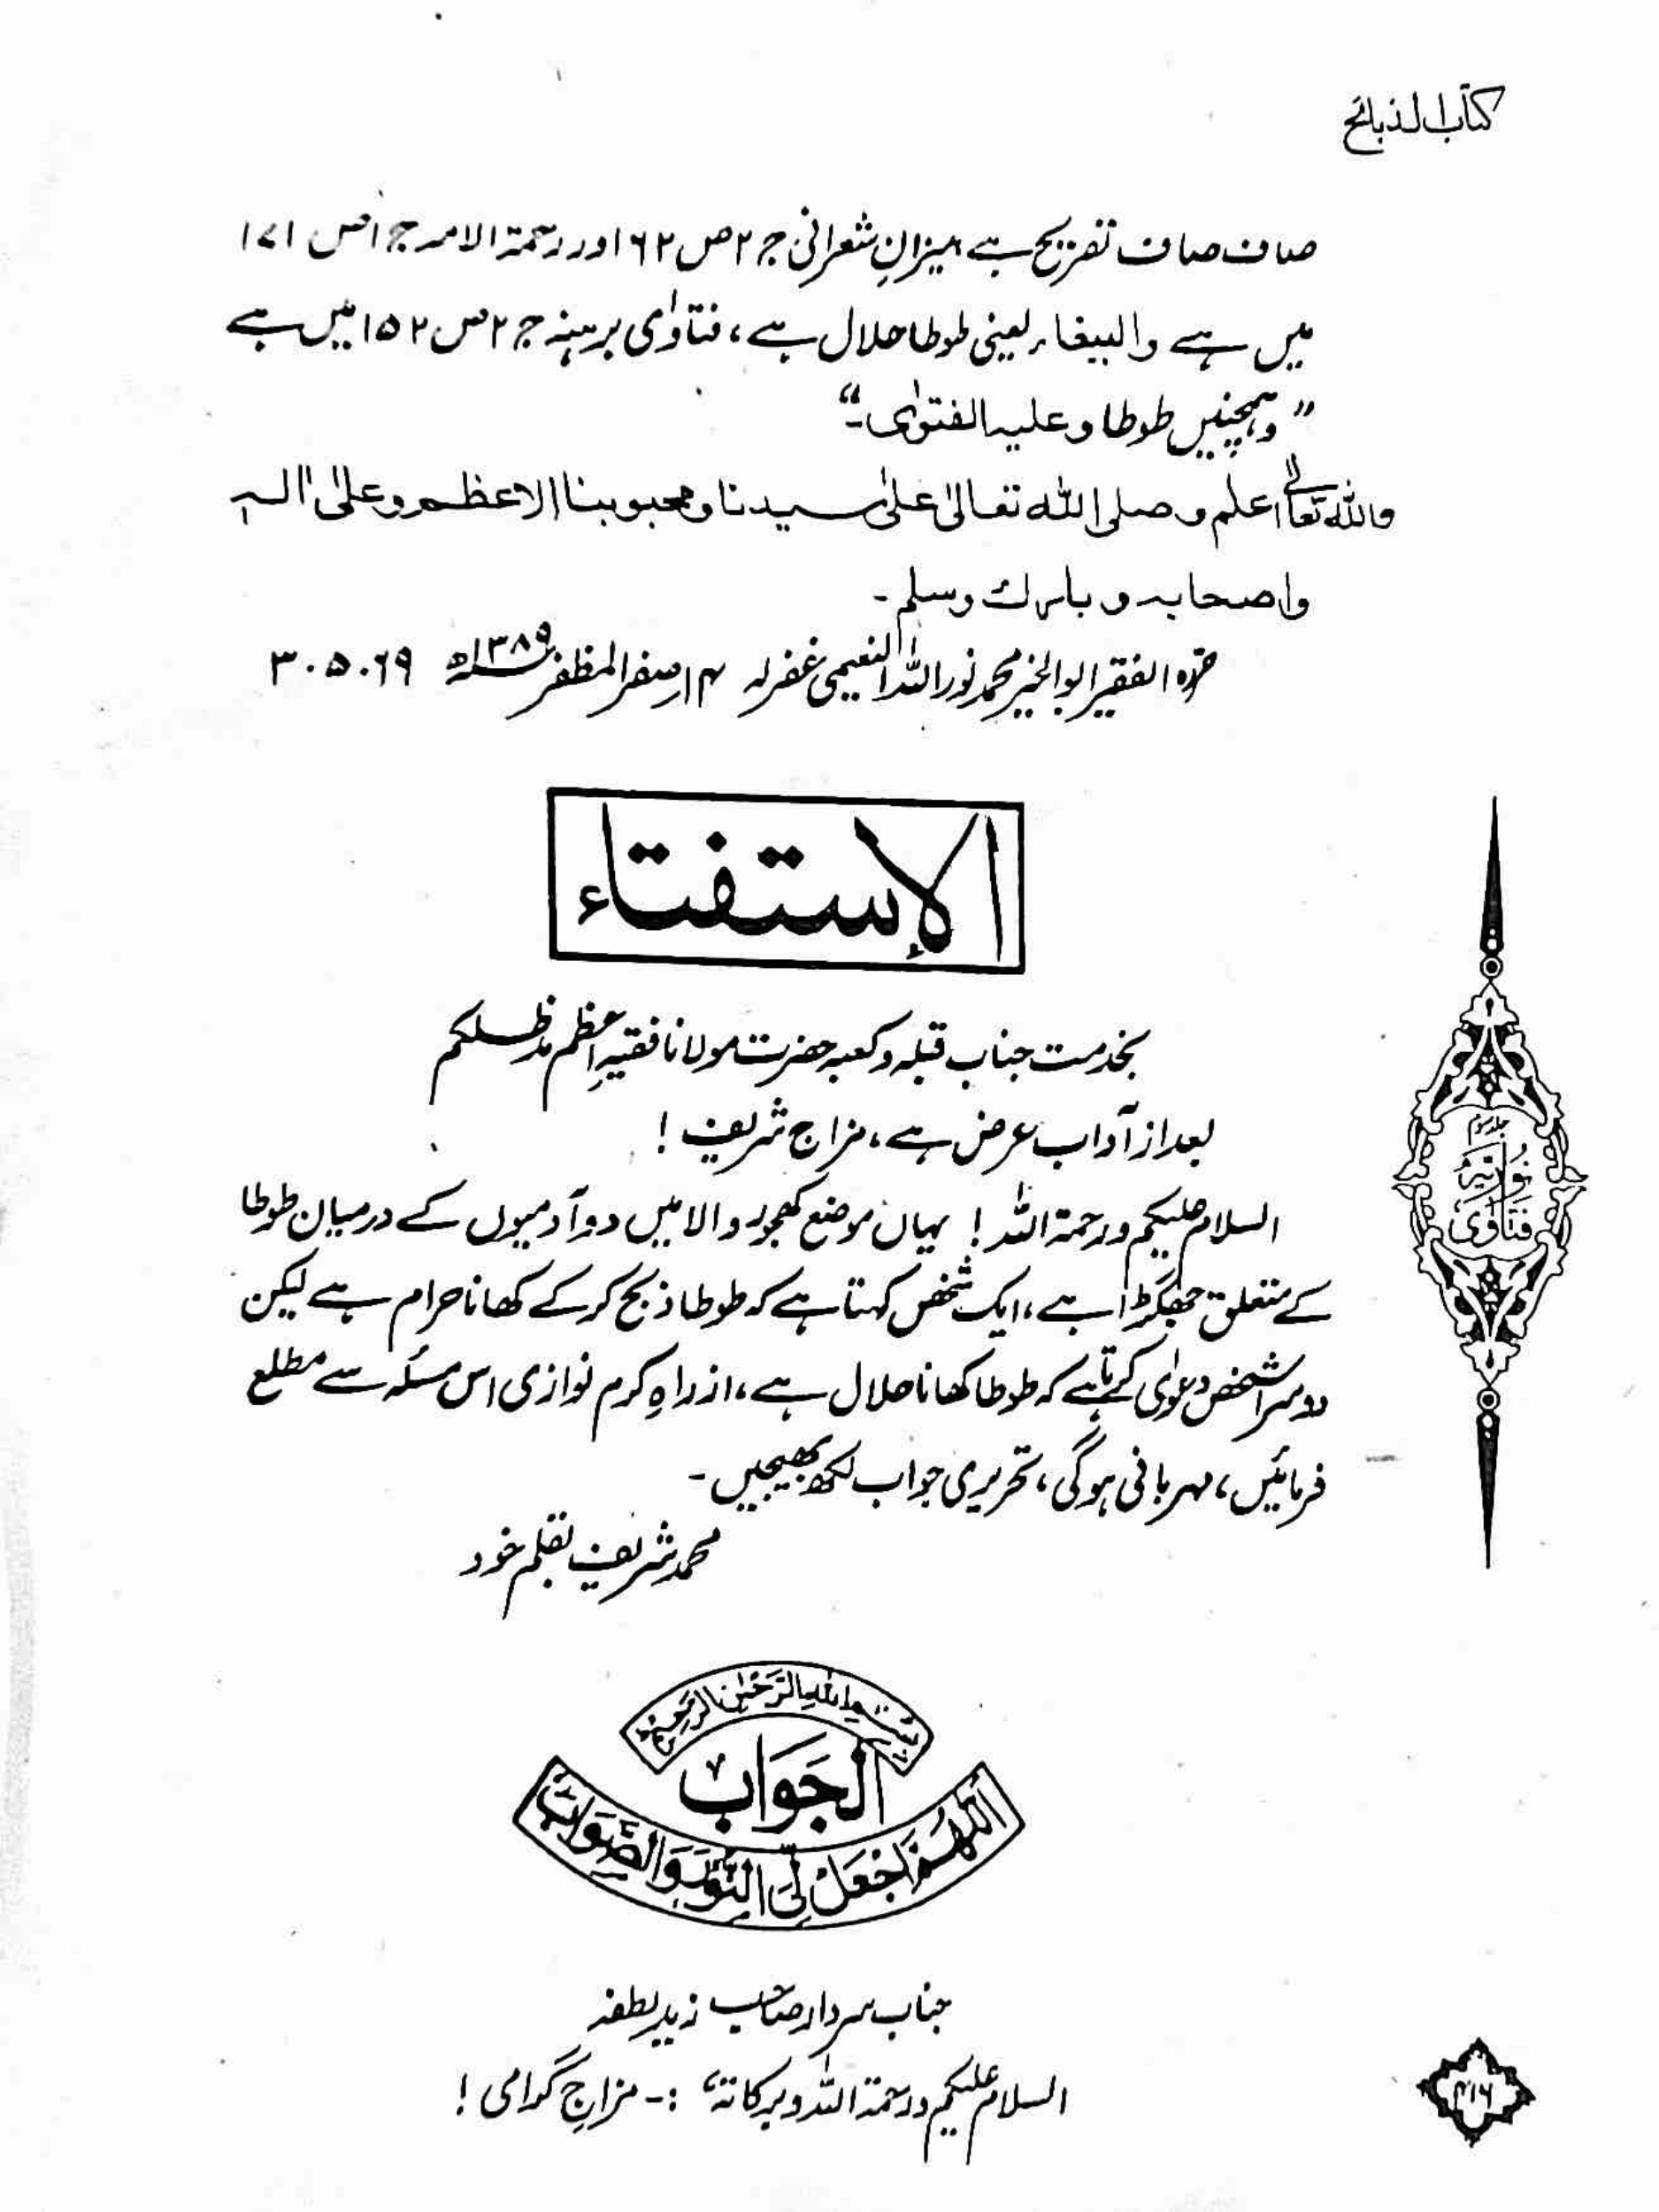 کتاب الذبائح
صاف صاف تصریح ہے میزانِ شعرانی ج ۲ ص ۶۲ اور رحمۃ الامہ ج ۱ ص ۱۷۱
میں ہے والببغاء یعنی طوطا حلال ہے، فتاوٰی برہنہ ج ۲ ص ۱۵۲ میں ہے
”وہمچنیں طوطا وعلیہ الفتوٰی۔“
واللہ تعالٰی اعلم وصلی اللہ تعالیٰ علیٰ سیدنا ومحبوبنا الاعظم وعلیٰ اٰلہ
واصحابہ وبارك وسلم۔
حرہ الفقیر ابو الخیر محمد نور اللہ النعیمی غفرلہ ۱۴ صفر المظفر ۱۳۸۹ھ ۳۰.۵.۶۹
الإستفتاء
بخدمت جناب قبلہ وکعبہ حضرت مولانا فقیہِ اعظم مدظلکم
بعد از آداب عرض ہے، مزاج شریف!
السلام علیکم ورحمۃ اللہ! یہاں موضع کھجور والا میں دو آدمیوں کے درمیان طوطا
کے متعلق جھگڑا ہے، ایک شخص کہتا ہے کہ طوطا ذبح کر کے کھانا حرام ہے لیکن
دوسرا شخص دعوٰی کرتا ہے کہ طوطا کھانا حلال ہے، از راہِ کرم نوازی اس مسئلہ سے مطلع
فرمائیں، مہربانی ہوگی، تحریری جواب لکھ بھیجیں۔
محمد شریف بقلم خود
جلد سوم
نوریہ
فتاوٰی
بسم اللہ الرحمٰن الرحیم
الجَوَاب
اَللّٰهُمَّ اجْعَلْ لِّیَ النُّوْرَ وَالصَّوَابَ
جناب سردار صاحب زید لطفہ
السلام علیکم ورحمۃ اللہ وبرکاتہٗ :- مزاجِ گرامی!
۴۱۶